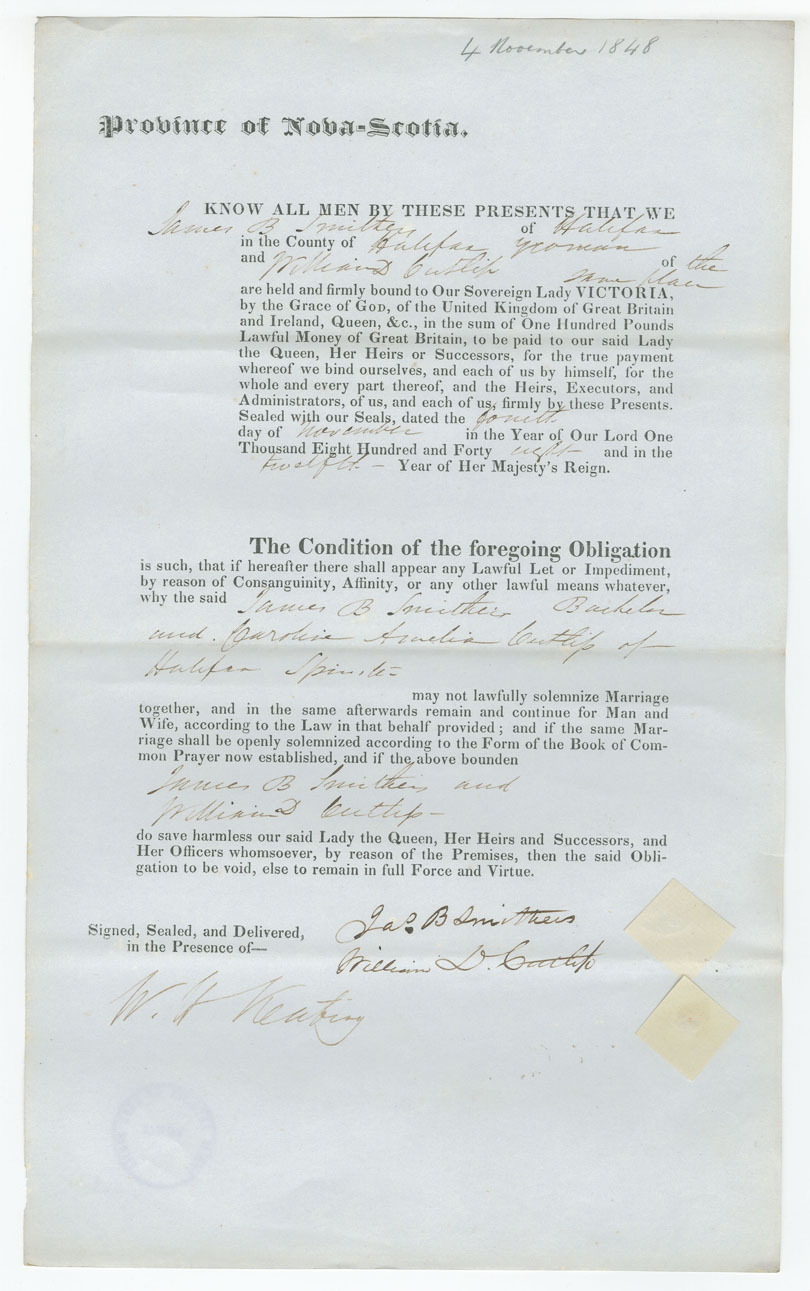 4 November 1848
Province of Nova-Scotia.
KNOW ALL MEN BY THESE PRESENTS THAT WE
James B Smithers of Halifax
in the County of Halifax yeoman
and William D Cutlip of the
same place
are held and firmly bound to Our Sovereign Lady VICTORIA,
by the Grace of GOD, of the United Kingdom of Great Britain
and Ireland, Queen, &c., in the sum of One Hundred Pounds
Lawful Money of Great Britain, to be paid to our said Lady
the Queen, Her Heirs or Successors, for the true payment
whereof we bind ourselves, and each of us by himself, for the
whole and every part thereof, and the Heirs, Executors, and
Administrators, of us, and each of us, firmly by these Presents.
Sealed with our Seals, dated the fourth
day of November in the Year of Our Lord One
Thousand Eight Hundred and Forty eight and in the
twelfth – Year of Her Majesty's Reign.
The Condition of the foregoing Obligation
is such, that if hereafter there shall appear any Lawful Let or Impediment,
by reason of Consanguinity, Affinity, or any other lawful means whatever,
why the said James B Smithers Bachelor
and Caroline Amelia Cutlip of
Halifax Spinster
may not lawfully solemnize Marriage
together, and in the same afterwards remain and continue for Man and
Wife, according to the Law in that behalf provided; and if the same Mar-
riage shall be openly solemnized according to the Form of the Book of Com-
mon Prayer now established, and if the above bounden
James B Smithers and
William D Cutlip –
do save harmless our said Lady the Queen, Her Heirs and Successors, and
Her Officers whomsoever, by reason of the Premises, then the said Obli-
gation to be void, else to remain in full Force and Virtue.
Signed, Sealed, and Delivered,
in the Presence of—
Jas B Smithers
William D. Cutlip
W. H Keating